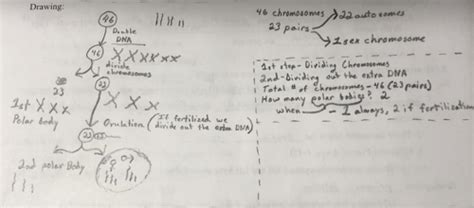 Drawing:
46
Double
DNA
46
divide
chromosomes
23
23
1st
Polar body
23
Ovulation (If fertilized we
divide out the extra DNA)
2nd polar Body
46 chromosomes
22 autosomes
23 pairs
1 sex chromosome
1st step - Dividing Chromosomes
2nd - Dividing out the extra DNA
Total # of chromosomes - 46 (23 pairs)
How many polar bodies? 2
when - 1 always, 2 if fertilization